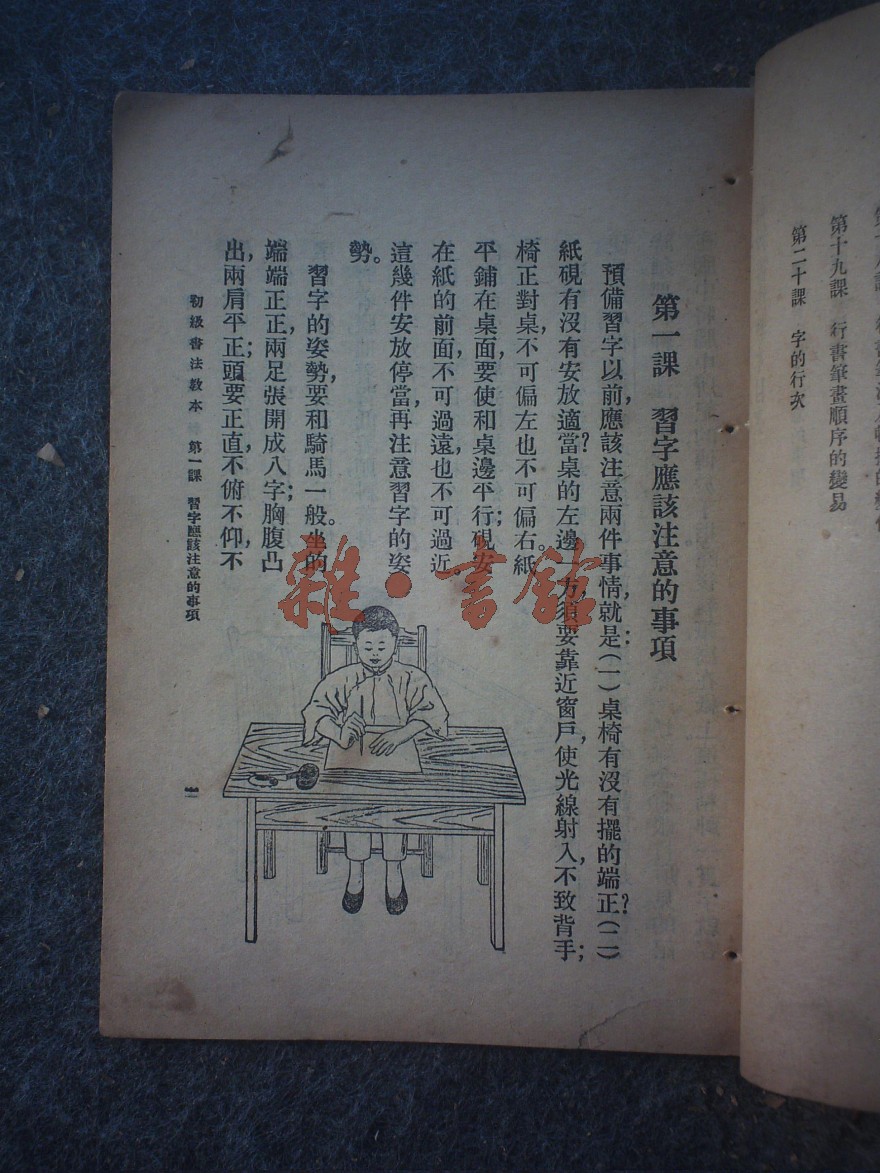 第十九課　行書筆畫順序的變易
第二十課　字的行次
第一課　習字應該注意的事項
預備習字以前，應該注意兩件事情，就是：（一）桌椅有沒有擺的端正？（二）
紙硯有沒有安放適當？桌的左邊一方，須要靠近窗戶，使光線射入，不致背手；
椅正對桌，不可偏左，也不可偏右。紙
平鋪在桌面，要使和桌邊平行；硯安
在紙的前面，不可過遠，也不可過近。
這幾件安放停當，再注意習字的姿
勢。
習字的姿勢，要和騎馬一般。坐的
端端正正，兩足張開成八字；胸腹凸
出，兩肩平正；頭要正直，不俯不仰，不
初級書法教本　第一課　習字應該注意的事項
雜·書館